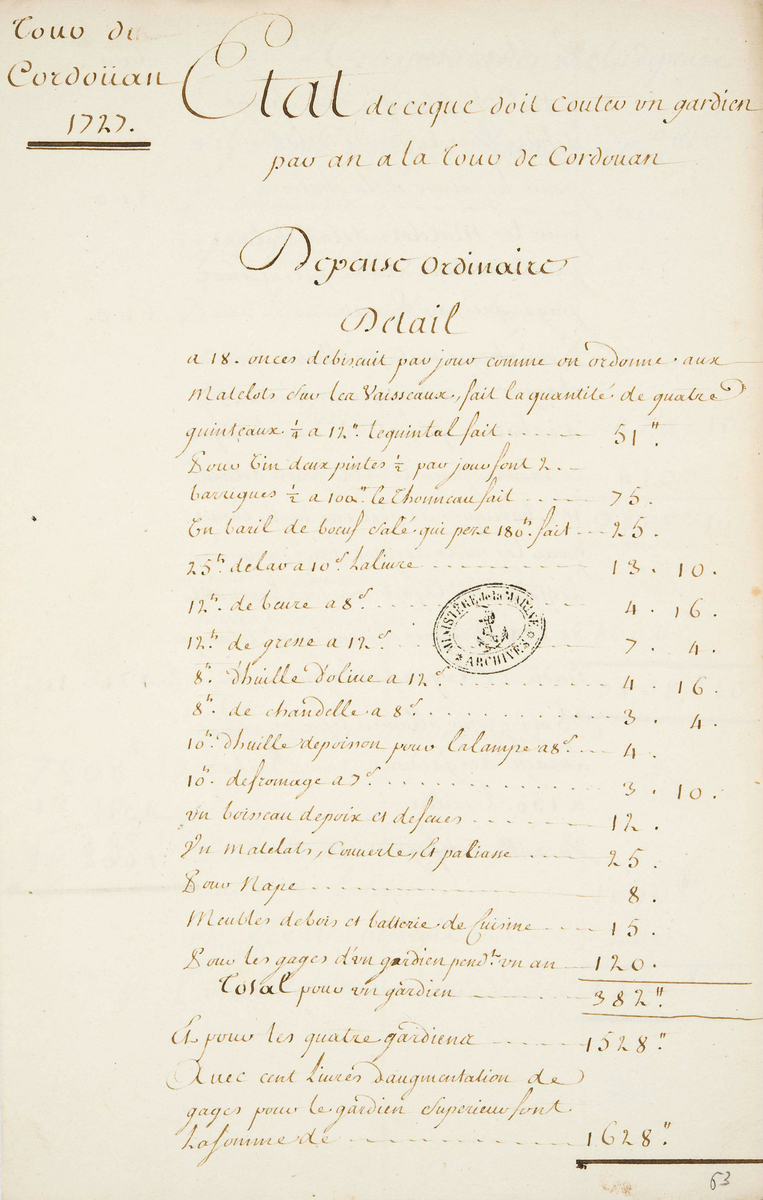 Tour de
Cordoüan
1727.
Etat de ce que doit couter vn gardien
par an a la Tour de Cordouan
Depense ordinaire
Detail
a 18. onces de biscuit par jour comme on ordonne aux
Matelots sur les Vaisseaux, fait la quantité de quatre
quinteaux ¼ a 12ᴴ. le quintal fait 51ᴴ.
Pour Vin deux pintes ½ par jour font 2.
barriques ½ a 100ᴴ. le Thonneau fait 75.
Un baril de boeuf salé qui peze 180ᵗᵗ. fait 25.
25ᵗᵗ. de lar a 10ˢ. La liure 13. 10.
12ᵗᵗ. de beure a 8ˢ. 4. 16.
MINISTÈRE de la MARINE
ARCHIVES
12ᵗᵗ. de gresse a 12ˢ. 7. 4.
8ᵗᵗ. d'huille d'oliue a 12ˢ. 4. 16.
8ᵗᵗ. de chandelle a 8ˢ. 3. 4.
10ᵗᵗ. dhuille de poisson pour la lampe a 8ˢ. 4.
10ᵗᵗ. de fromage a 7ˢ. 3. 10.
vn boisseau de poix et de feues 12.
Vn Matelats, Couuerte, Et paliasse 25.
Pour Nape 8.
Meubles de bois et batterie de Cuisine 15.
Pour les gages d'vn gardien pendᵗ. vn an 120.
Total pour vn gardien 382ᴴ
Et pour les quatre gardiens 1528ᴴ.
Auec cent Liures daugmentation de
gages pour le gardien superieur font
La somme de 1628ᴴ.
63